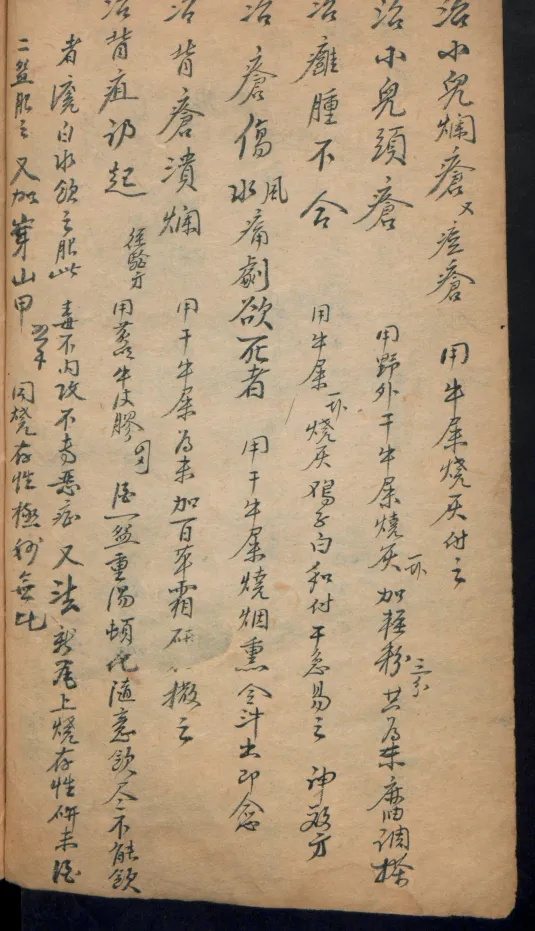 治小兒爛瘡又痘瘡 用牛屎燒灰付之
治小兒頭瘡 用野外干牛屎燒灰 加輕粉三分共為末 麻油調搽
治癰腫不合 用牛屎燒灰鴉子白和付干急易之 神效方
治瘡傷水風痛劇欲死者 用干牛屎燒烟熏令汁出即愈
治背瘡潰爛 用干牛屎為末加百草霜研 撒之
治背疽初起 經驗方 用黃牛皮膠 酒一盌重湯頓化隨意飲尽不能飲
者滾白水飲之服此毒不內攻不專惡症 又法 尾上燒存性研末酒
二盌服之 又加穿山甲 同燒存性極妙無比